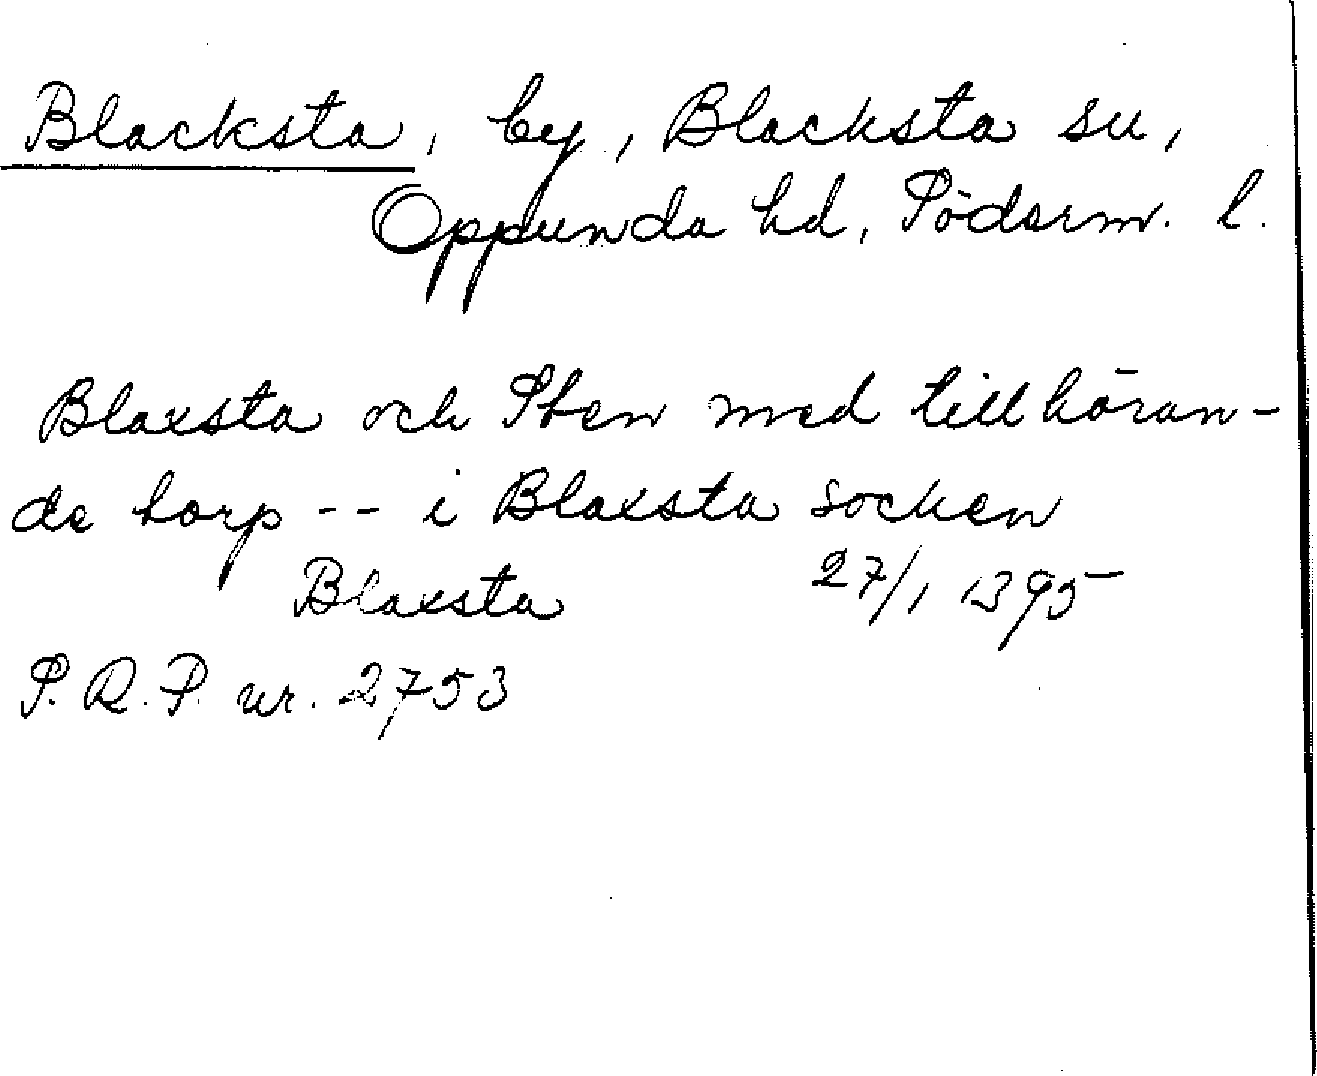 Blacksta, by, Blacksta sn,
Oppunda hd, Söderm. l.
Blaxsta och Sten med tillhöran-
de torp -- i Blaxsta socken
Blaxsta 27/1 1395
S. R. P. nr. 2753